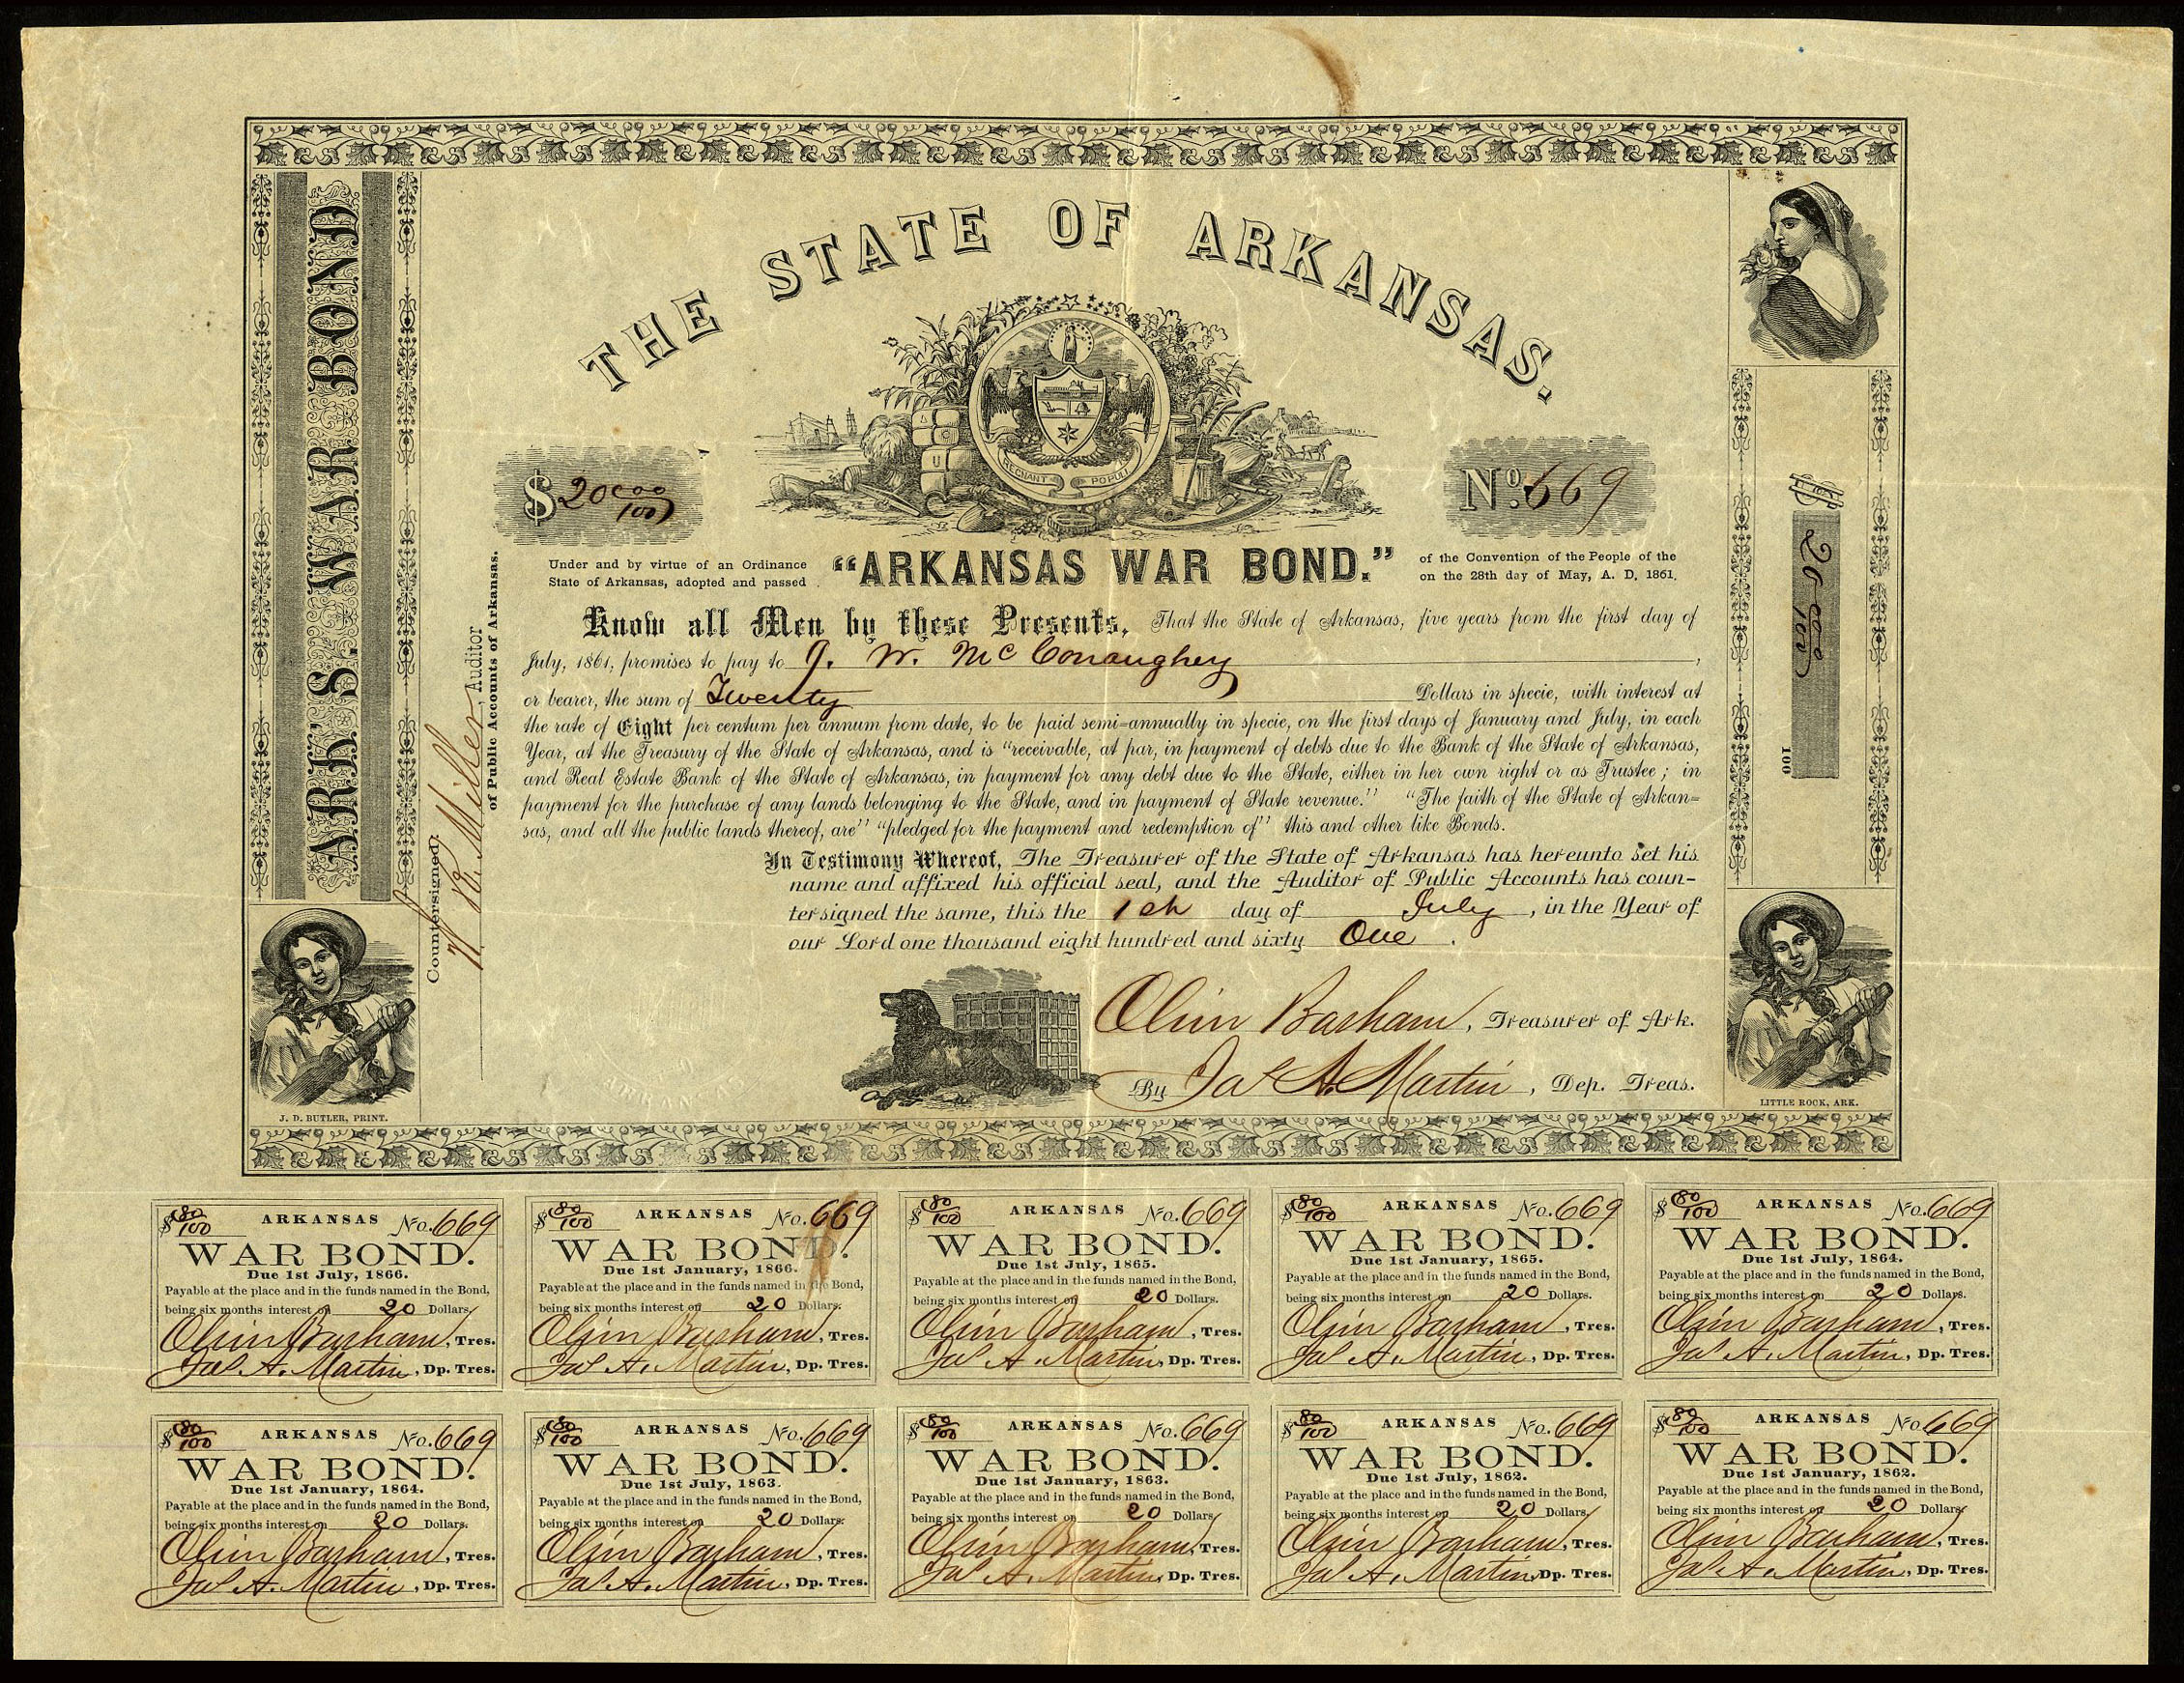 THE STATE OF ARKANSAS.
REGNANT POPULI
$ 20 00/100
No. 669
Under and by virtue of an Ordinance "ARKANSAS WAR BOND." of the Convention of the People of the
State of Arkansas, adopted and passed on the 28th day of May, A. D. 1861.
Know all Men by these Presents, That the State of Arkansas, five years from the first day of
July, 1861, promises to pay to J. W. McConaughey,
or bearer, the sum of Twenty Dollars in specie, with interest at
the rate of Eight per centum per annum from date, to be paid semi-annually in specie, on the first days of January and July, in each
Year, at the Treasury of the State of Arkansas, and is "receivable, at par, in payment of debts due to the Bank of the State of Arkansas,
and Real Estate Bank of the State of Arkansas, in payment for any debt due to the State, either in her own right or as Trustee; in
payment for the purchase of any lands belonging to the State, and in payment of State revenue." "The faith of the State of Arkan-
sas, and all the public lands thereof, are" "pledged for the payment and redemption of" this and other like Bonds.
In Testimony Whereof, The Treasurer of the State of Arkansas has hereunto set his
name and affixed his official seal, and the Auditor of Public Accounts has coun-
tersigned the same, this the 1st day of July, in the Year of
our Lord one thousand eight hundred and sixty One.
Olin Basham, Treasurer of Ark.
By Jas A. Martin, Dep. Treas.
ARK'S. WAR BOND
Countersigned:
W. R. Miller, Auditor
of Public Accounts of Arkansas.
$ 20 00/100
100
J. D. BUTLER, PRINT.
LITTLE ROCK, ARK.
ARKANSAS
$ 80/100 ARKANSAS No. 669
WAR BOND.
Due 1st July, 1866.
Payable at the place and in the funds named in the Bond,
being six months interest on 20 Dollars.
Olin Basham, Tres.
Jas A. Martin, Dp. Tres.
$ 80/100 ARKANSAS No. 669
WAR BOND.
Due 1st January, 1866.
Payable at the place and in the funds named in the Bond,
being six months interest on 20 Dollars.
Olin Basham, Tres.
Jas A. Martin, Dp. Tres.
$ 80/100 ARKANSAS No. 669
WAR BOND.
Due 1st July, 1865.
Payable at the place and in the funds named in the Bond,
being six months interest on 20 Dollars.
Olin Basham, Tres.
Jas A. Martin, Dp. Tres.
$ 80/100 ARKANSAS No. 669
WAR BOND.
Due 1st January, 1865.
Payable at the place and in the funds named in the Bond,
being six months interest on 20 Dollars.
Olin Basham, Tres.
Jas A. Martin, Dp. Tres.
$ 80/100 ARKANSAS No. 669
WAR BOND.
Due 1st July, 1864.
Payable at the place and in the funds named in the Bond,
being six months interest on 20 Dollars.
Olin Basham, Tres.
Jas A. Martin, Dp. Tres.
$ 80/100 ARKANSAS No. 669
WAR BOND.
Due 1st January, 1864.
Payable at the place and in the funds named in the Bond,
being six months interest on 20 Dollars.
Olin Basham, Tres.
Jas A. Martin, Dp. Tres.
$ 80/100 ARKANSAS No. 669
WAR BOND.
Due 1st July, 1863.
Payable at the place and in the funds named in the Bond,
being six months interest on 20 Dollars.
Olin Basham, Tres.
Jas A. Martin, Dp. Tres.
$ 80/100 ARKANSAS No. 669
WAR BOND.
Due 1st January, 1863.
Payable at the place and in the funds named in the Bond,
being six months interest on 20 Dollars.
Olin Basham, Tres.
Jas A. Martin, Dp. Tres.
$ 80/100 ARKANSAS No. 669
WAR BOND.
Due 1st July, 1862.
Payable at the place and in the funds named in the Bond,
being six months interest on 20 Dollars.
Olin Basham, Tres.
Jas A. Martin, Dp. Tres.
$ 80/100 ARKANSAS No. 669
WAR BOND.
Due 1st January, 1862.
Payable at the place and in the funds named in the Bond,
being six months interest on 20 Dollars.
Olin Basham, Tres.
Jas A. Martin, Dp. Tres.